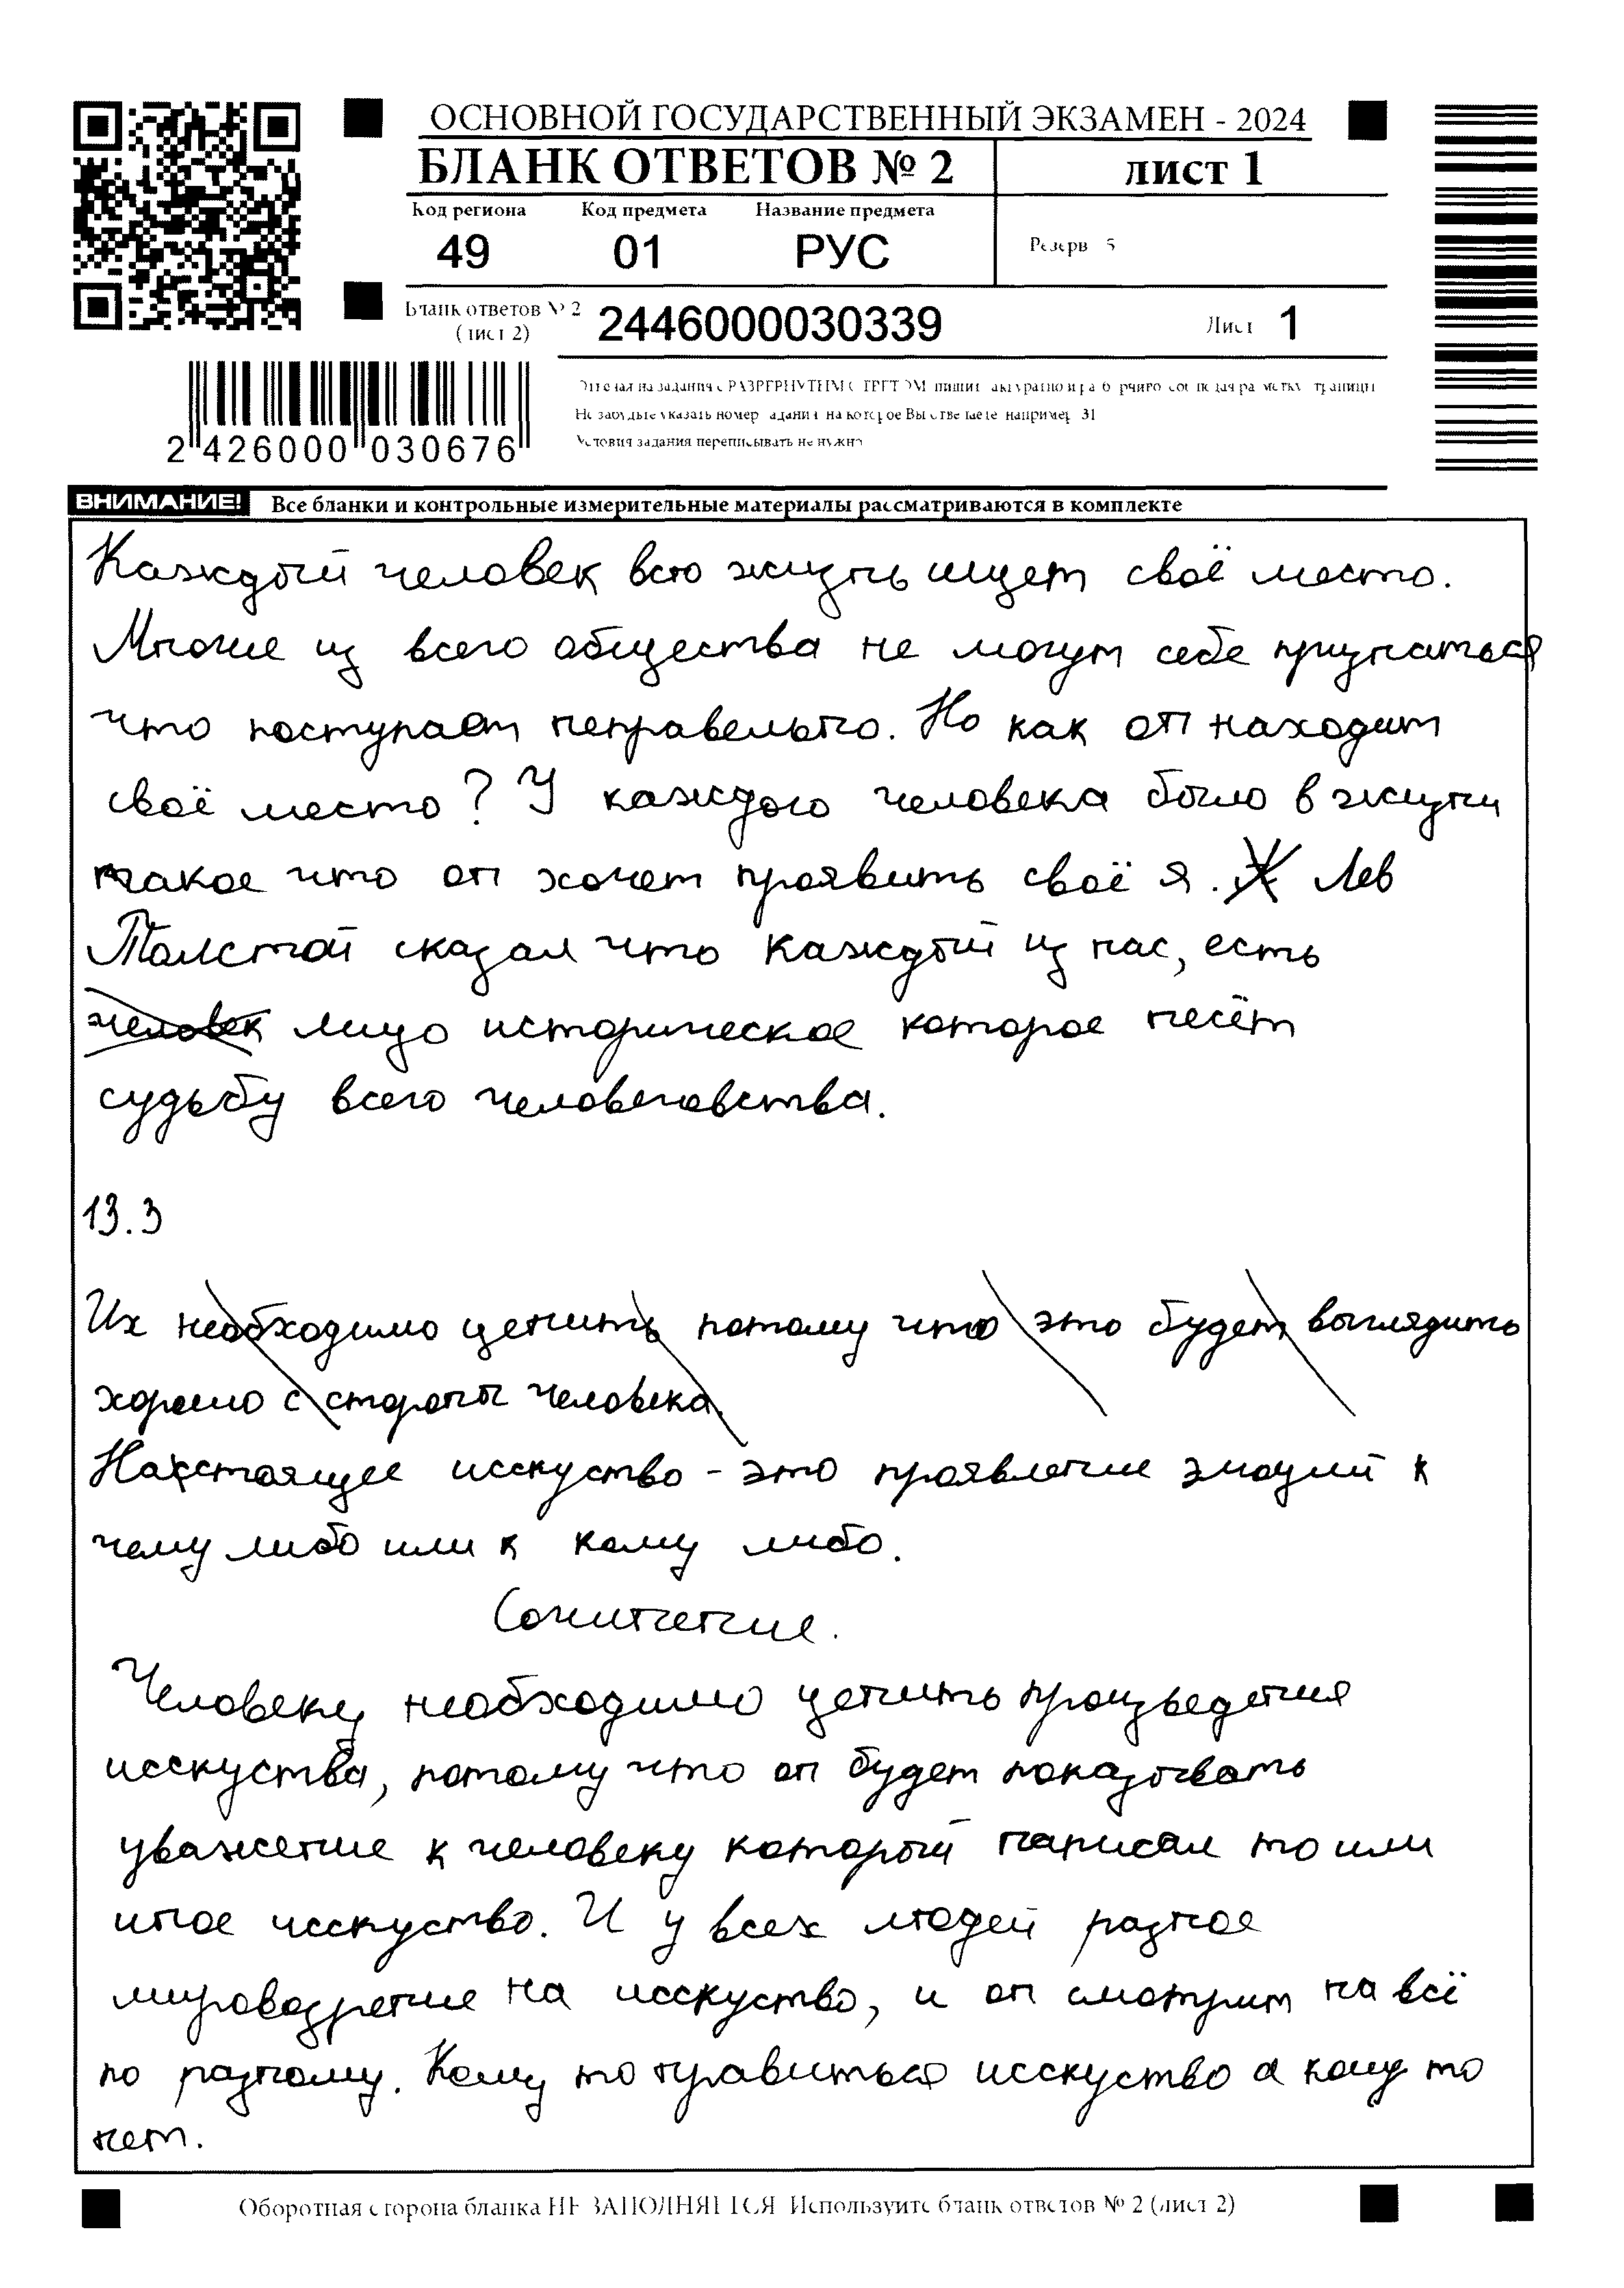 ОСНОВНОЙ ГОСУДАРСТВЕННЫЙ ЭКЗАМЕН - 2024
БЛАНК ОТВЕТОВ № 2
лист 1
Код региона Код предмета Название предмета
49 01 РУС
Резерв 5
Бланк ответов № 2
(лист 2)
2446000030339
Лист 1
2 426000 030676
Не забудьте указать номер задания на которое Вы отвечаете например 31
Условия задания переписывать не нужно
ВНИМАНИЕ! Все бланки и контрольные измерительные материалы рассматриваются в комплекте
Каждый человек всю жизнь ищет своё место.
Многие из всего общества не могут себе признаться
что поступает неправельно. Но как он находит
своё место? У каждого человека было в жизни
такое что он хочет проявить своё я. Ж Лев
Толстой сказал что каждый из нас, есть
человек лицо историческое которое несёт
судьбу всего человечевства.
13.3
Их необходимо ценить потому что это будет выглядить
хорошо с стороны человека.
Настоящее исскуство - это проявление эмоций к
чему либо или к кому либо.
Сочинение.
Человеку необходимо ценить произведения
исскуства, потому что он будет показывать
уважение к человеку который написал то или
иное исскуство. И у всех людей разное
мировоззрение на исскуство, и он смотрит на всё
по разному. Кому то нравиться исскуство а кому то
нет.
Оборотная сторона бланка НЕ ЗАПОЛНЯЕТСЯ Используите бланк ответов № 2 (лист 2)